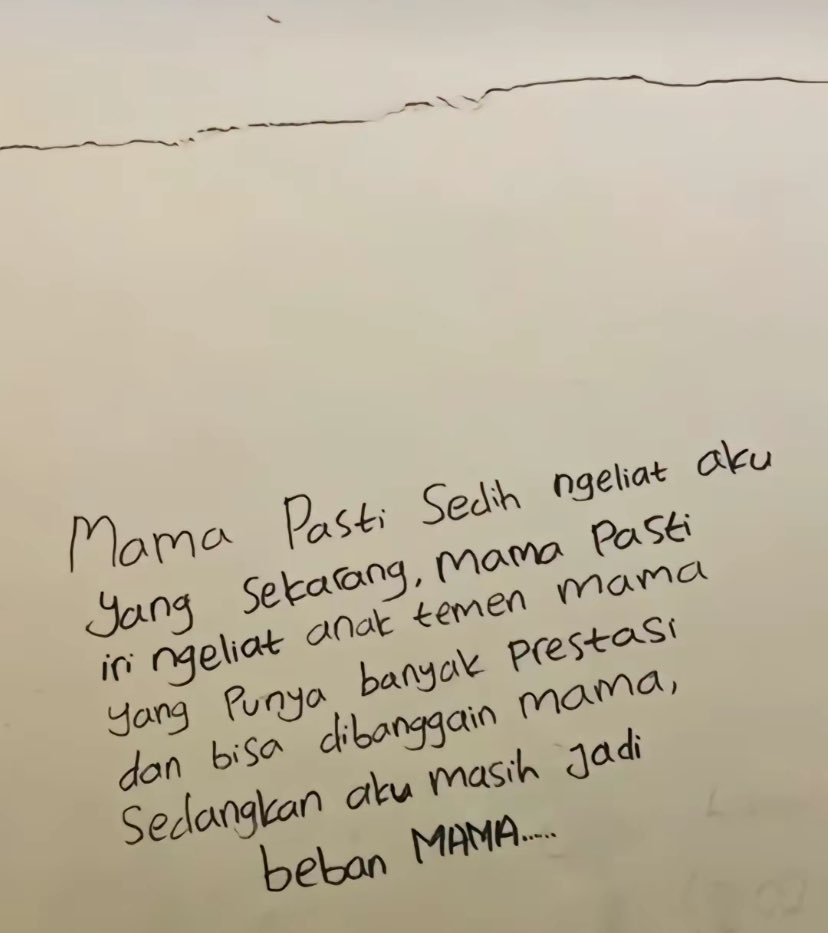 Mama Pasti Sedih ngeliat aku
yang Sekarang, mama pasti
iri ngeliat anak temen mama
yang Punya banyak prestasi
dan bisa dibanggain mama,
Sedangkan aku masih jadi
beban MAMA.....